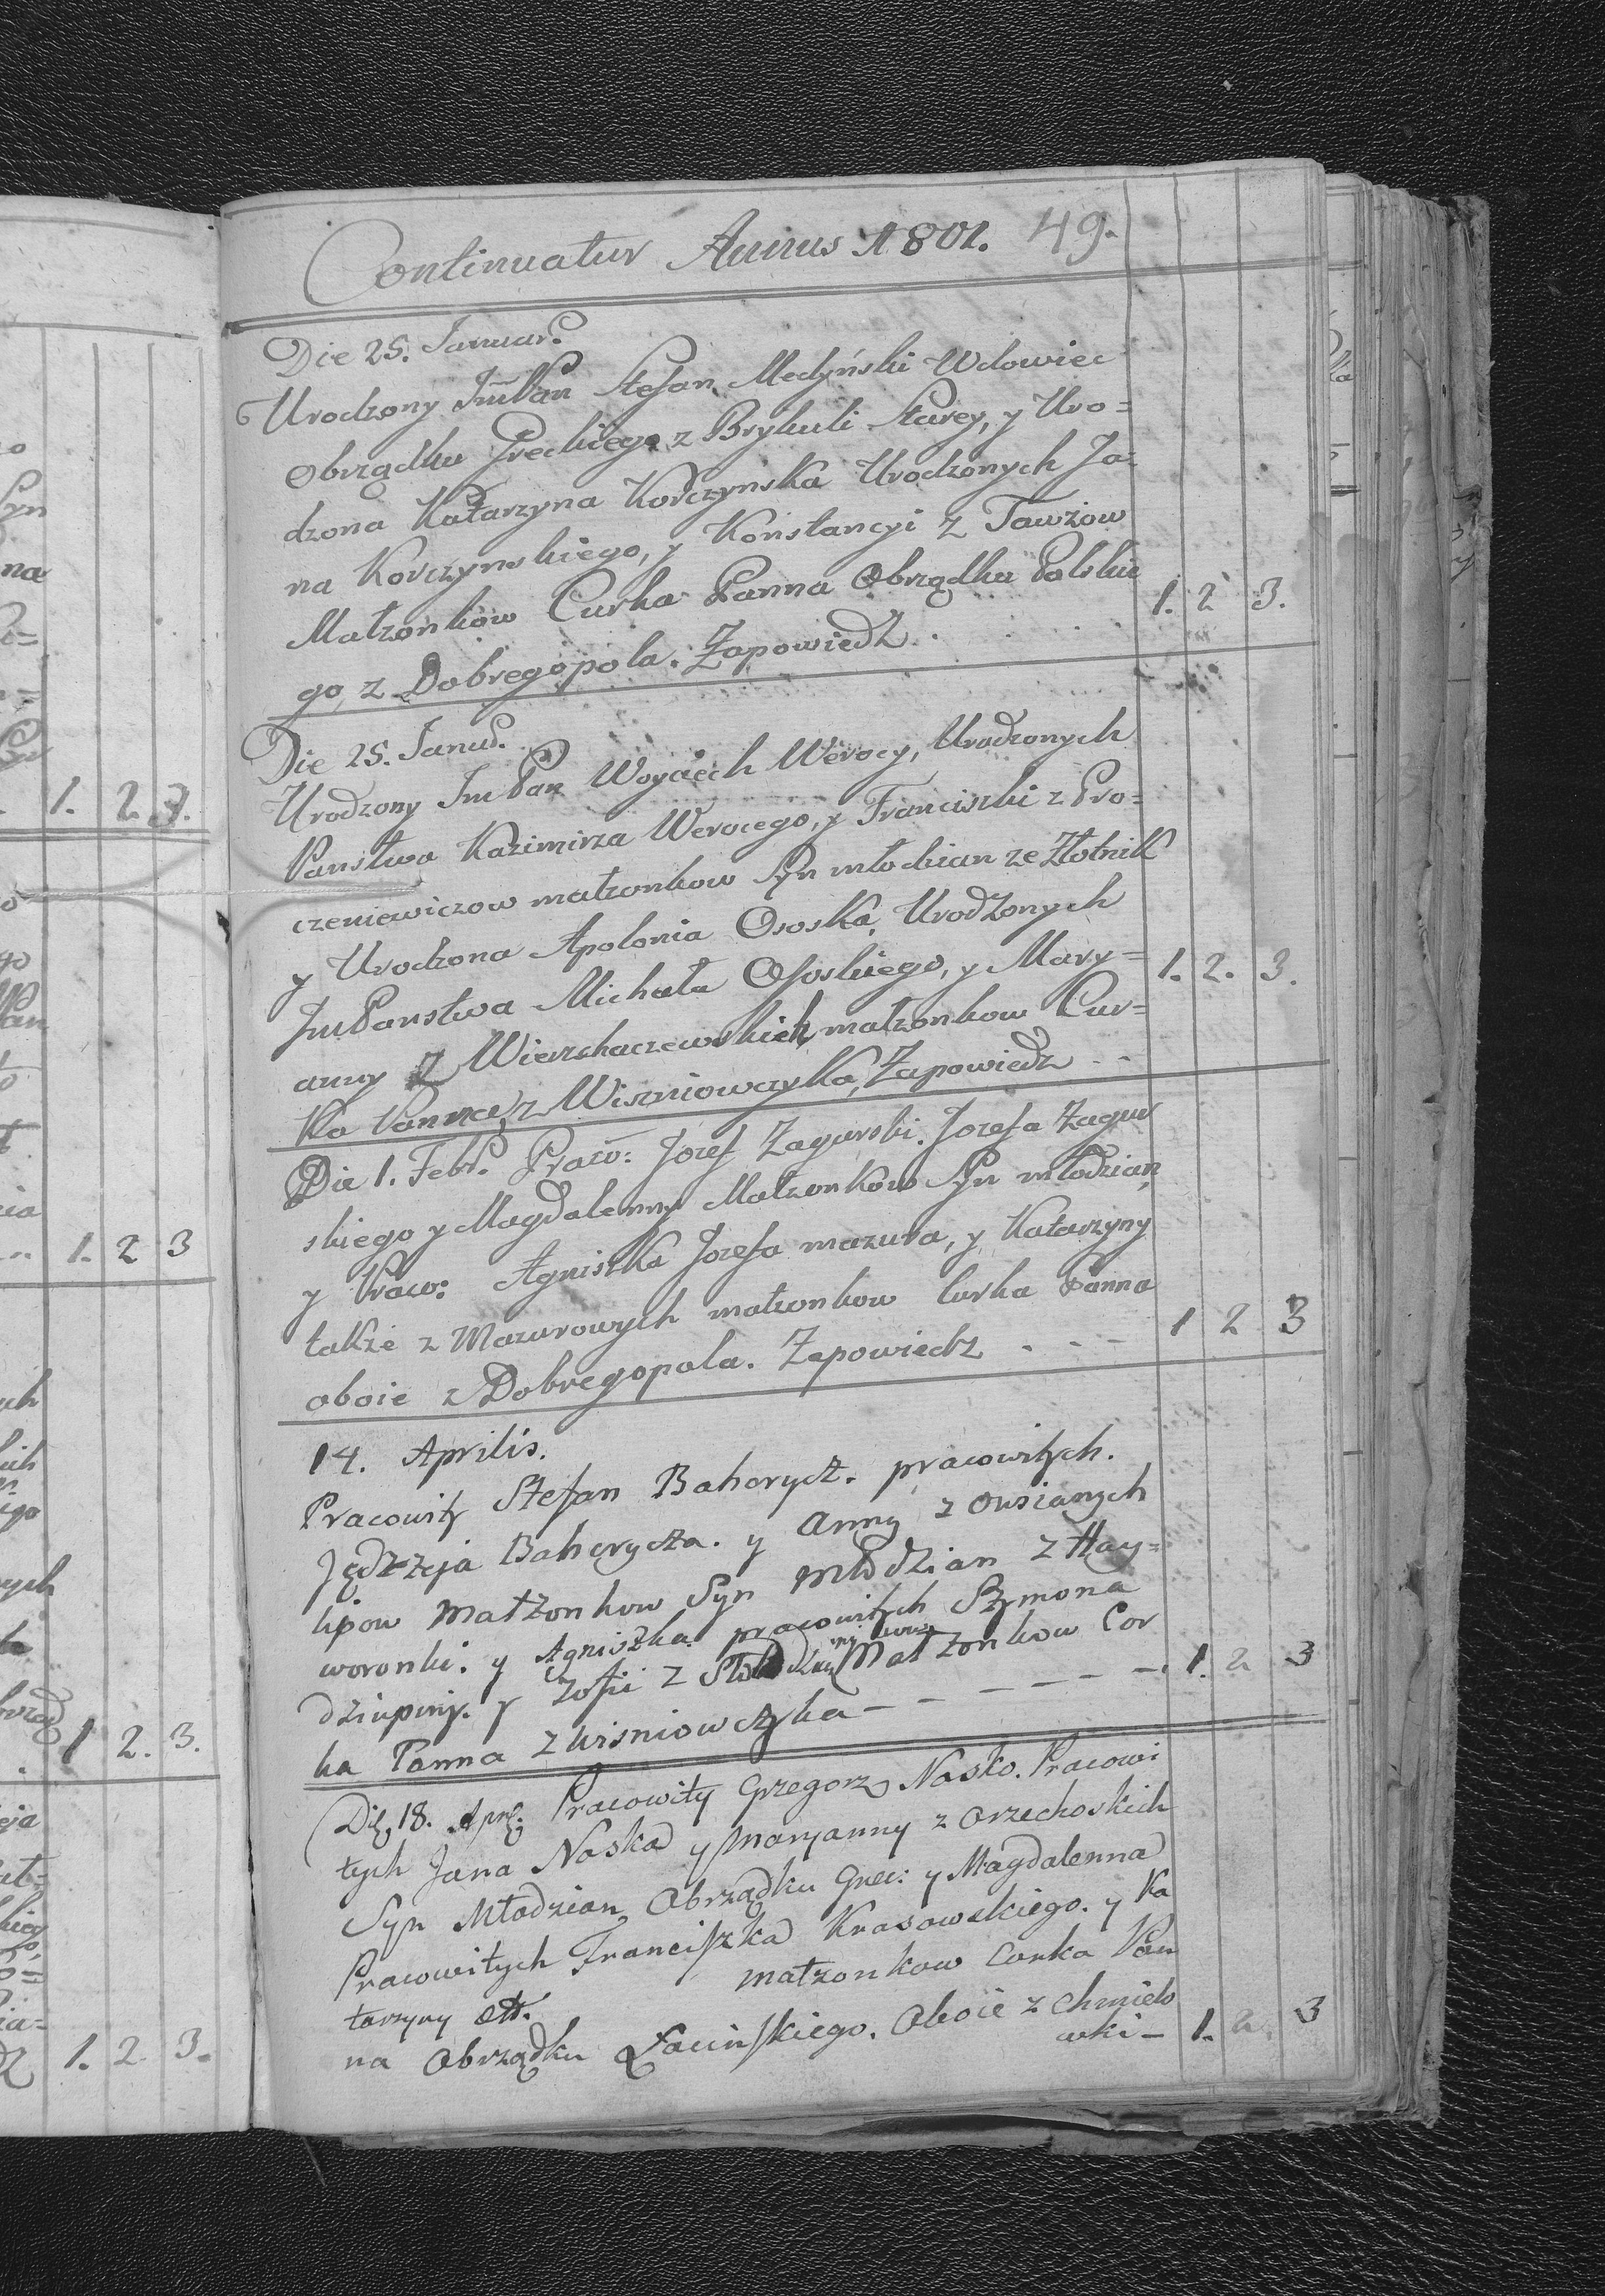 Continuatur Annus 1801. 49.
Die 25. Januar.
Urodzony JmPan Stefan Medyński Wdowiec
Obrządku Greckiego z Brykuli Starey, y Uro=
dzona Katarzyna Korczynska Urodzonych Ja=
na Korczynskiego, y Konstancyi z Jawzow
Małzonkow Curka Panna Obrządku Polskie
go, z Dobregopola. Zapowiedz . . . . 1. 2 3.
Die 25. Januar.
Urodzony Jm Pan Woyciech Werocy, Urodzonych
Panstwa Kazimirza Werocego, y Franciszki z Pro=
czeniewiczow małzonkow Syn młodzian ze Złotnik
y Urodzona Apolonia Ososka, Urodzonych
JmPanstwa Michała Ososkiego, y Mary=
anny z Wierzchaczewskich małzonkow Cur=
ka Panna z Wiszniowczyka, Zapowiedz - - 1. 2. 3.
Die 1. Febr. Praw: Jozef Zagurski Jozefa Zagur
skiego y Magdalenny Małzonkow Syn młodzian,
y Praw: Agniszka Jozefa mazura, y Katarzyny
także z Mazurowych małzonkow Curka Panna
oboie z Dobregopola. Zapowiedz . - - - 1 2 3
14. Aprilis.
Pracowity Stefan Bahorycz. pracowitych.
Jędrzeja Bahorycza. y Anny z Owsianych
lipow Małzonkow Syn Młodzian z Hay=
woronki. y Agniszka pracowitych Szymona
dziupiny. y Zofii z Małzonkow Cor
ka Panna z Wisniowczyka - - - - - - 1. 2 3
Die 18. Apr: Pracowity Grzegorz Nasko. Pracowi
tych Jana Naska y Maryanny z Orzechoskich
Syn Młodzian Obrządku Grec: y Magdalenna
Pracowitych Franciszka Krasowskiego. y Ka
tarzyny małzonkow Corka Pan
na Obrządku Łacinskiego. Oboie z Chmielo
wki - 1. 2. 3